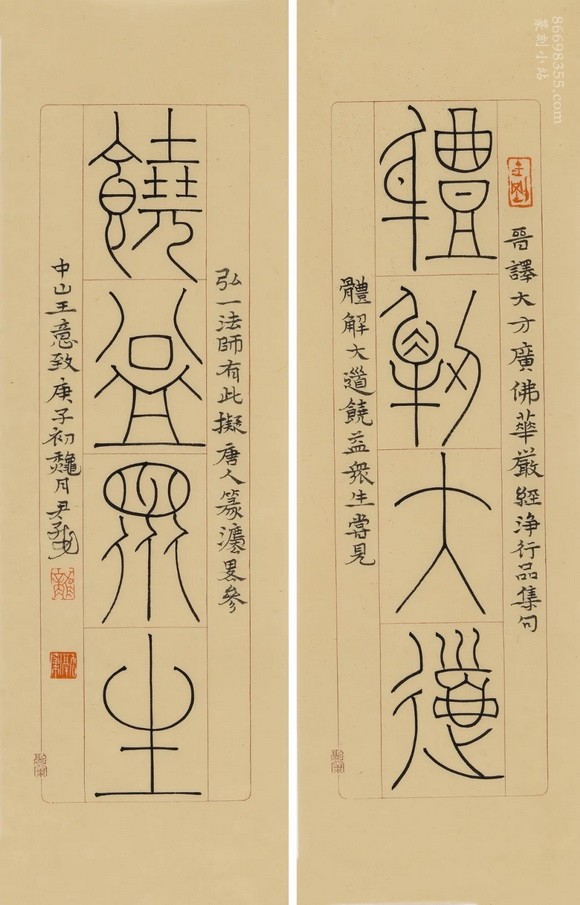 晉譯大方廣佛華嚴經淨行品集句
體解大道
體解大道饒益衆生嘗見
弘一法師有此擬唐人篆灋畧參
饒益衆生
中山王意致庚子初龝月尹
86698355.com
篆刻小站